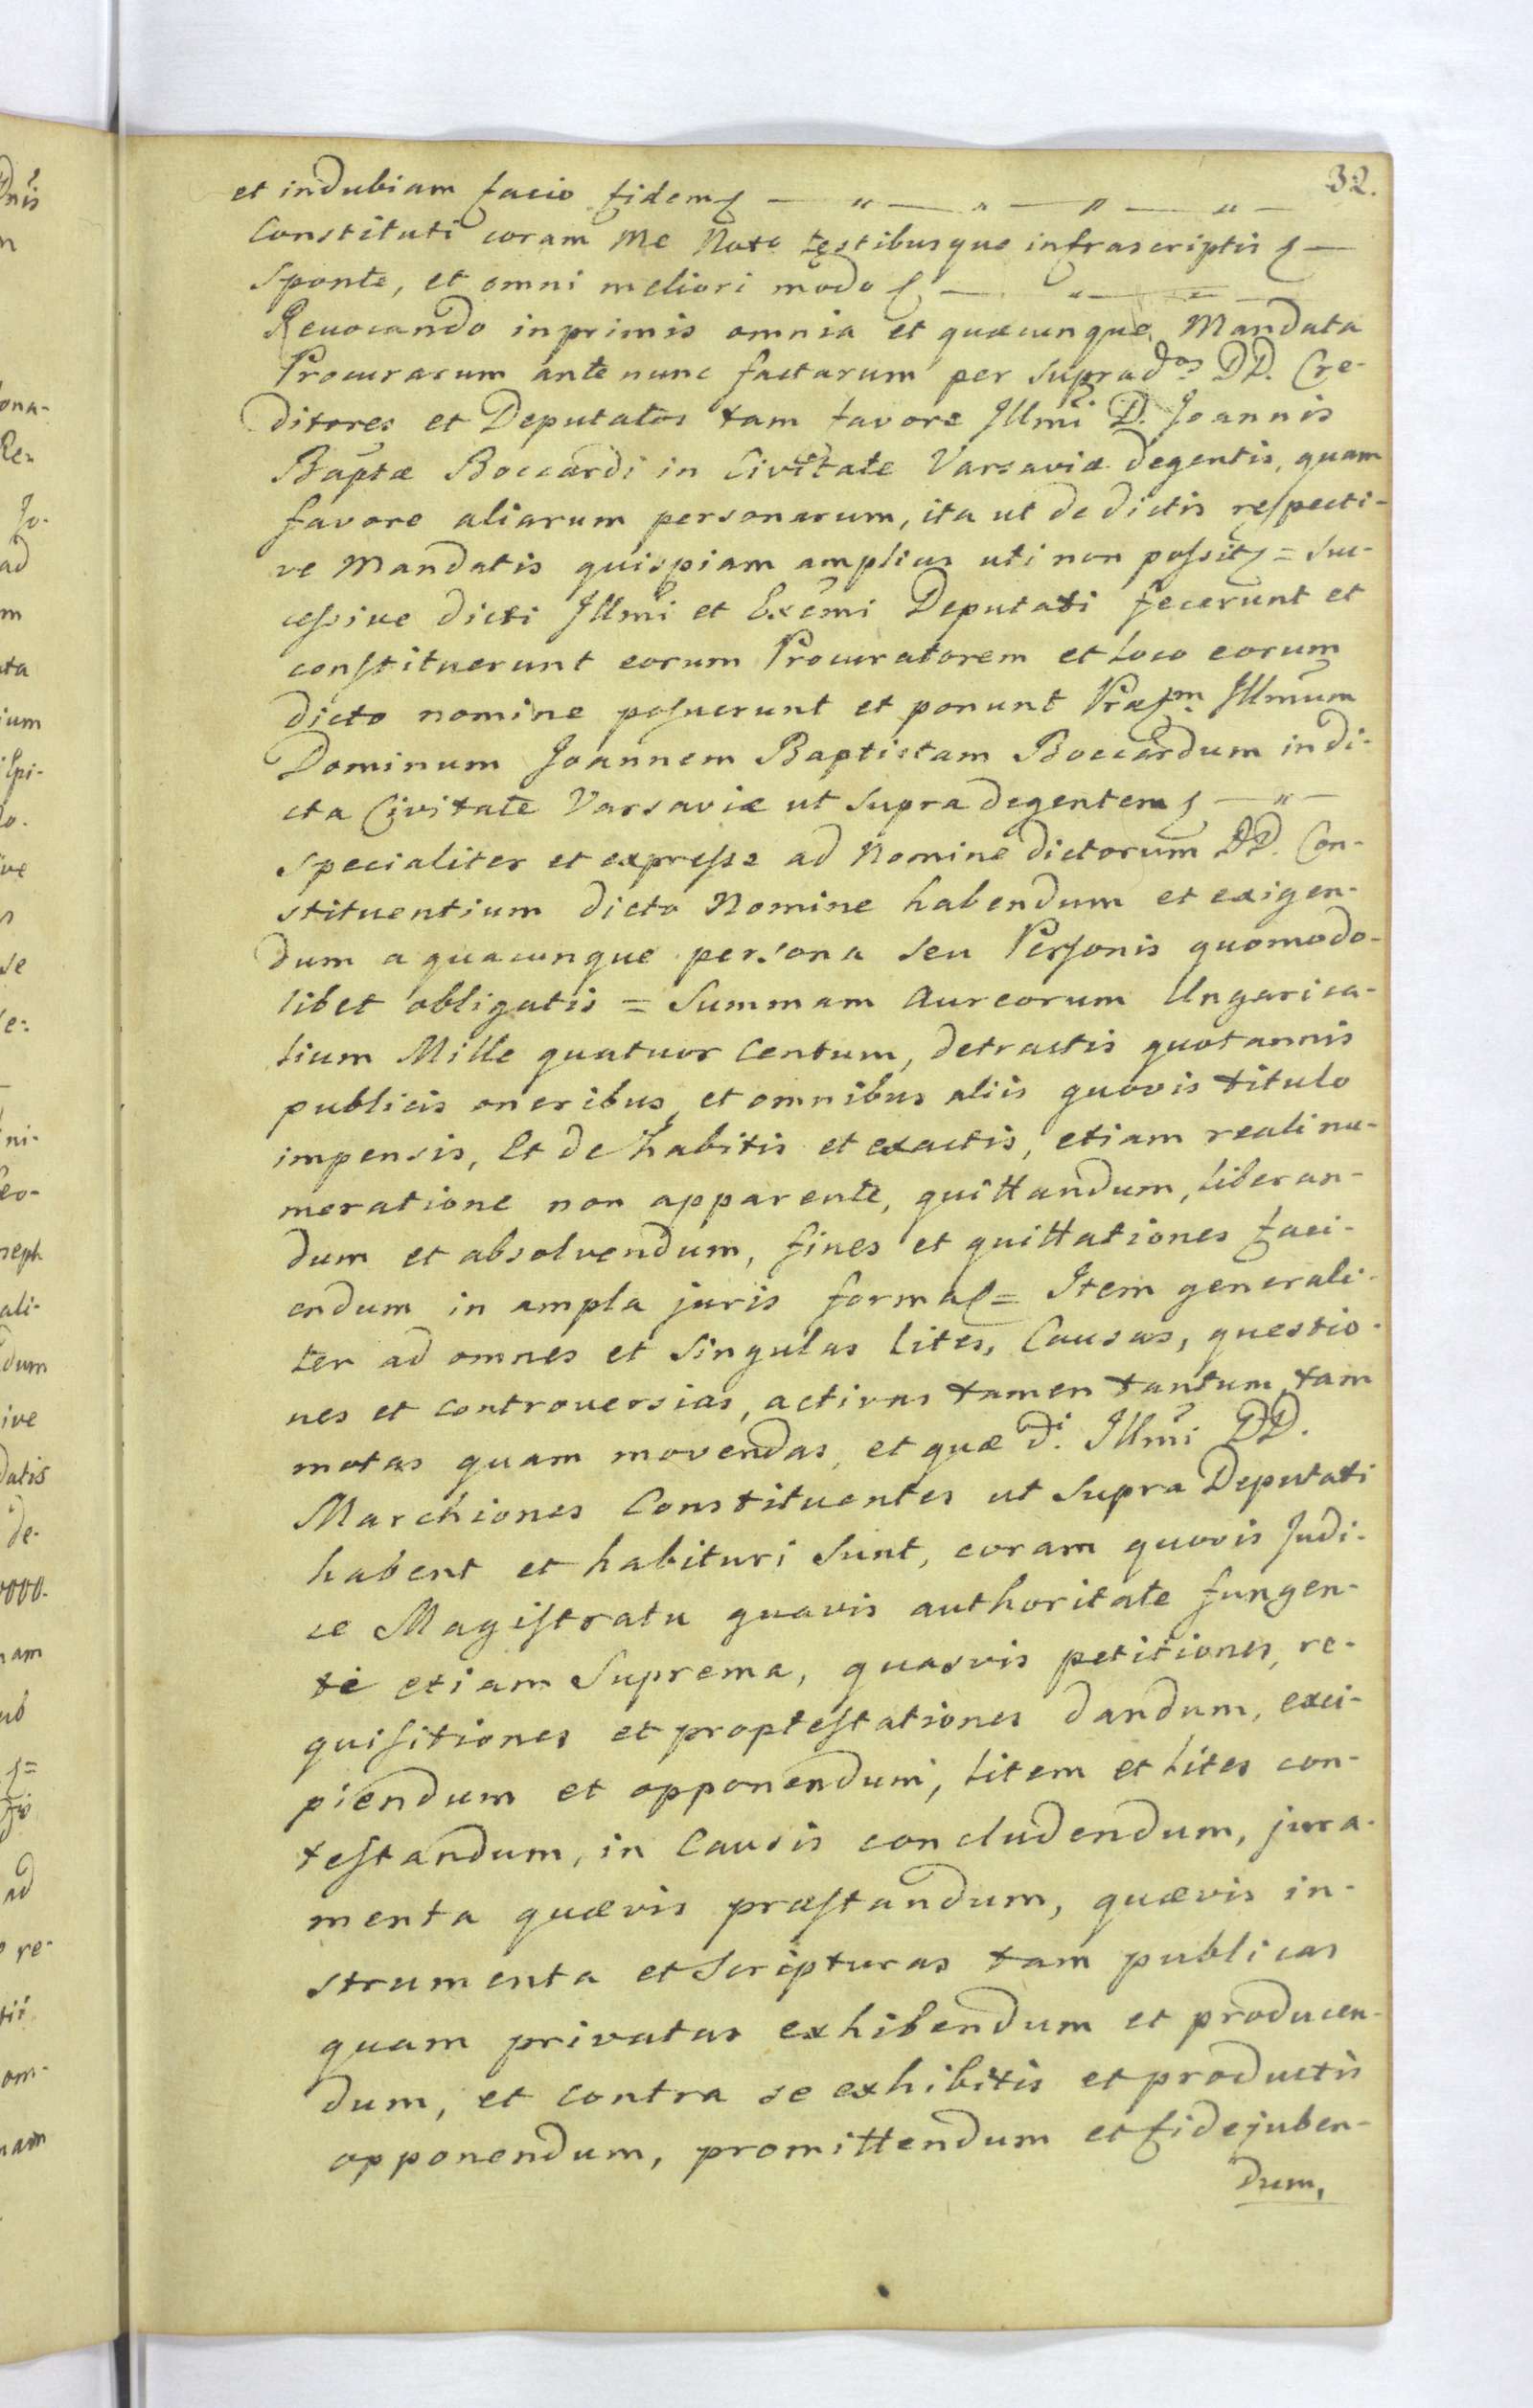 32.
et indubiam facio fidem — " — " — " — " —
Constituti coram Me Noto testibusque infrascriptis —
Sponte, et omni meliori modo — " — = —
Revocando inprimis omnia et quæcunque Mandata
Procurarum ante nunc factarum per suprados DD. Cre-
ditores et Deputatos tam favore Illmi D. Joannis
Baptæ Boccardi in Civitate Varsaviæ degentis, quam
favore aliarum personarum, ita ut de dictis respecti-
ve Mandatis quispiam amplius uti non possit = Suc-
cessive dicti Illmi et Exemi Deputati fecerunt et
constituerunt eorum Procuratorem et Loco eorum
dicto nomine posuerunt et ponunt Præfm Illmum
Dominum Joannem Baptistam Boccardum in di-
cta Civitate Varsaviæ ut supra degentem — " —
Specialiter et expresse ad Nomine dictorum DD. Con-
stituentium dicto Nomine habendum et exigen-
dum a quacunque persona seu Personis quomodo-
libet obligatis = Summam Aureorum Ungarica-
lium Mille quatuor Centum, detractis quotannis
publicis oneribus, et omnibus aliis quovis titulo
impensis, Et de habitis et exactis, etiam reali nu-
meratione non apparente, quittandum, liberan-
dum et absolvendum, fines et quittationes faci-
endum in ampla juris forma = Item generali-
ter ad omnes et Singulas Lites, Causas, questio-
nes et controversias, activas tamen tantum, tam
motas quam movendas, et quæ di. Illmi DD.
Marchiones Constituentes ut Supra Deputati
habent et habituri Sunt, coram quovis Judi-
ce Magistratu quavis authoritate fungen-
te etiam Suprema, quasvis petitiones, re-
quisitiones et proptestationes dandum, exci-
piendum et opponendum, litem et lites con-
testandum, in Causis concludendum, jura-
menta quævis præstandum, quævis in-
strumenta et Scripturas tam publicas
quam privatas exhibendum et producen-
dum, et contra se exhibitis et productis
opponendum, promittendum et fidejuben-
dum,